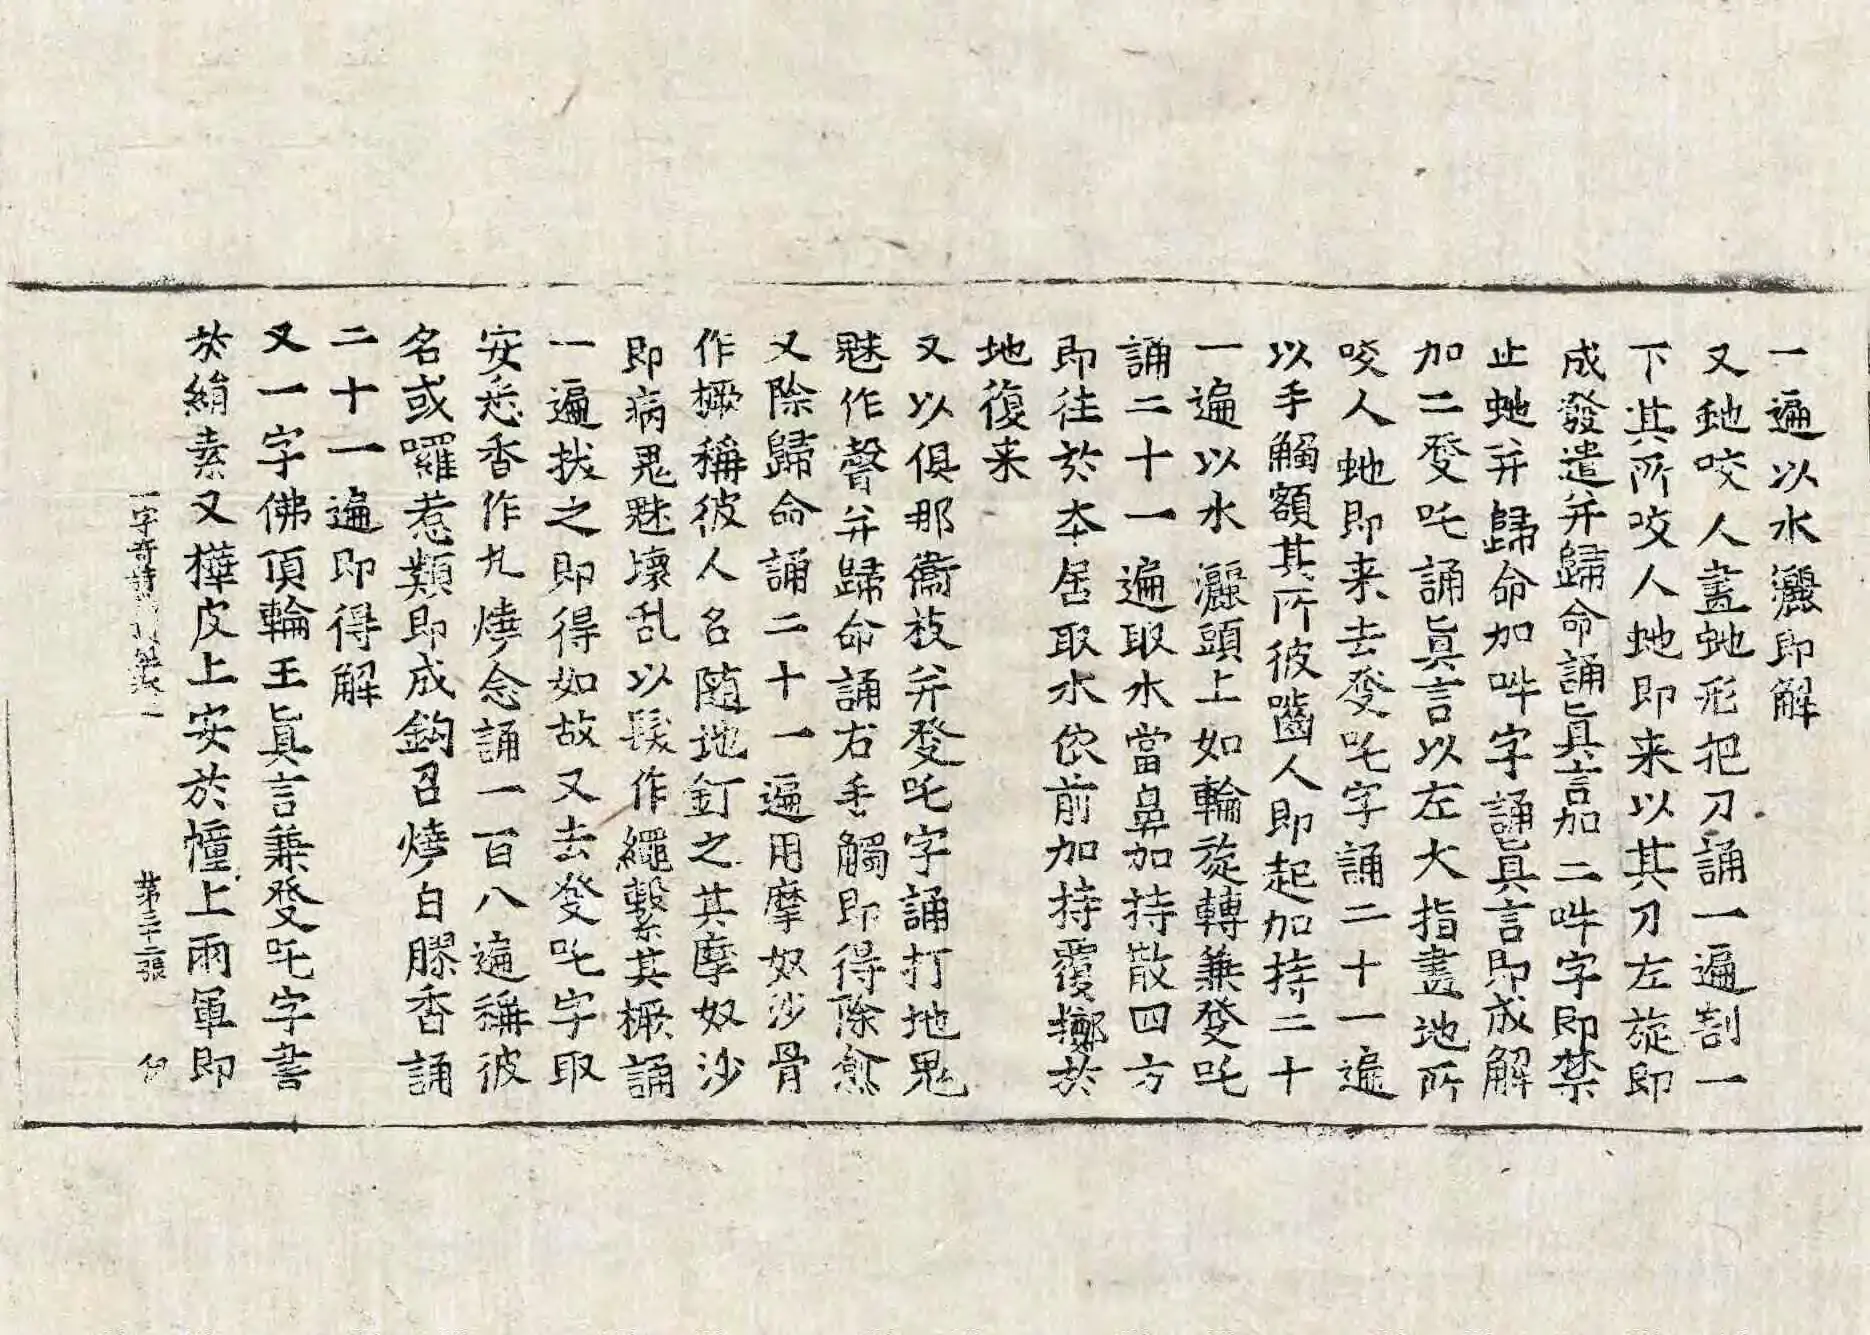 一遍以水灑即解
又虵咬人畫虵形把刀誦一遍割一
下其所咬人虵即来以其刀左旋即
成發遣并歸命誦眞言加二吽字即禁
止虵并歸命加吽字誦眞言即成解
加二癹吒誦眞言以左大指畫地所
咬人虵即来去癹吒字誦二十一遍
以手觸額其所彼嚙人即起加持二十
一遍以水灑頭上如輪旋轉兼癹吒
誦二十一遍取水當鼻加持散四方
即往於本居取水依前加持覆擲於
地復来
又以俱那衞枝并癹吒字誦打地鬼
魅作聲并歸命誦右手觸即得除愈
又除歸命誦二十一遍用摩奴沙骨
作橛稱彼人名随地釘之其摩奴沙
即病鬼魅壞乱以髮作繩繫其橛誦
一遍拔之即得如故又去癹吒字取
安悉香作丸燒念誦一百八遍稱彼
名或囉惹類即成鈎召燒白膠香誦
二十一遍即得解
又一字佛頂輪王眞言兼癹吒字書
於絹素又樺皮上安於幢上兩軍即
一字奇特 第三十二張